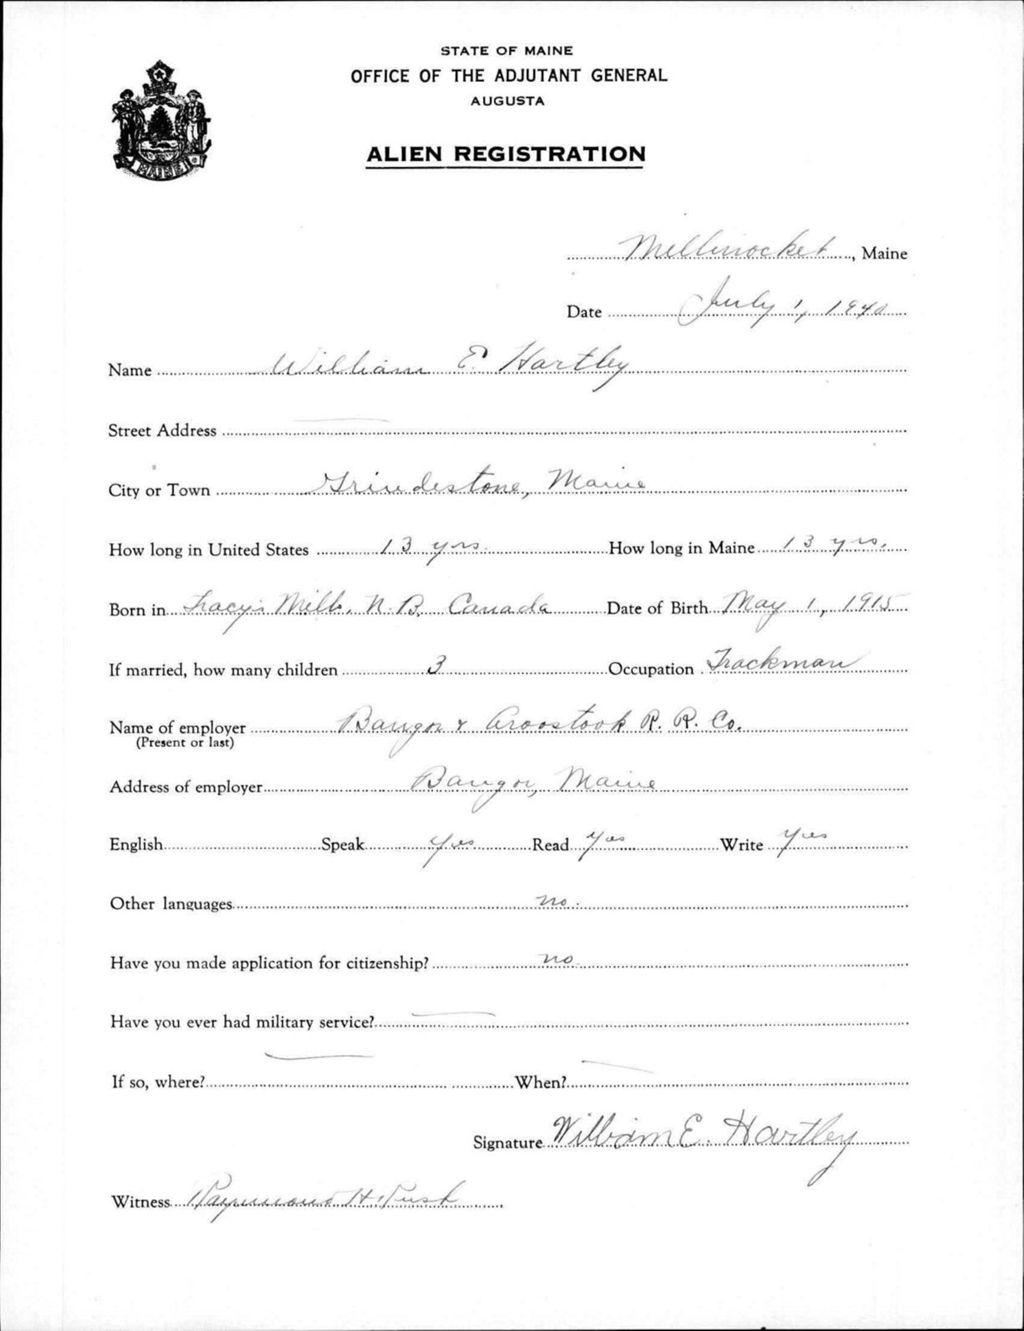 STATE OF MAINE
OFFICE OF THE ADJUTANT GENERAL
AUGUSTA
ALIEN REGISTRATION
MAINE
Millinocket, Maine
Date July 1, 1940
Name William E Hartley
Street Address
City or Town Grindestone, Maine
How long in United States 13 yrs. How long in Maine 13 yrs.
Born in Tracy's Mills, N.B. Canada Date of Birth May 1, 1915
If married, how many children 3 Occupation Trackman
Name of employer Bangor & Aroostook R. R. Co.
(Present or last)
Address of employer Bangor, Maine
English Speak Yes Read Yes Write Yes
Other languages no.
Have you made application for citizenship? no
Have you ever had military service?
If so, where? When?
Signature William E. Hartley
Witness Raymond H.